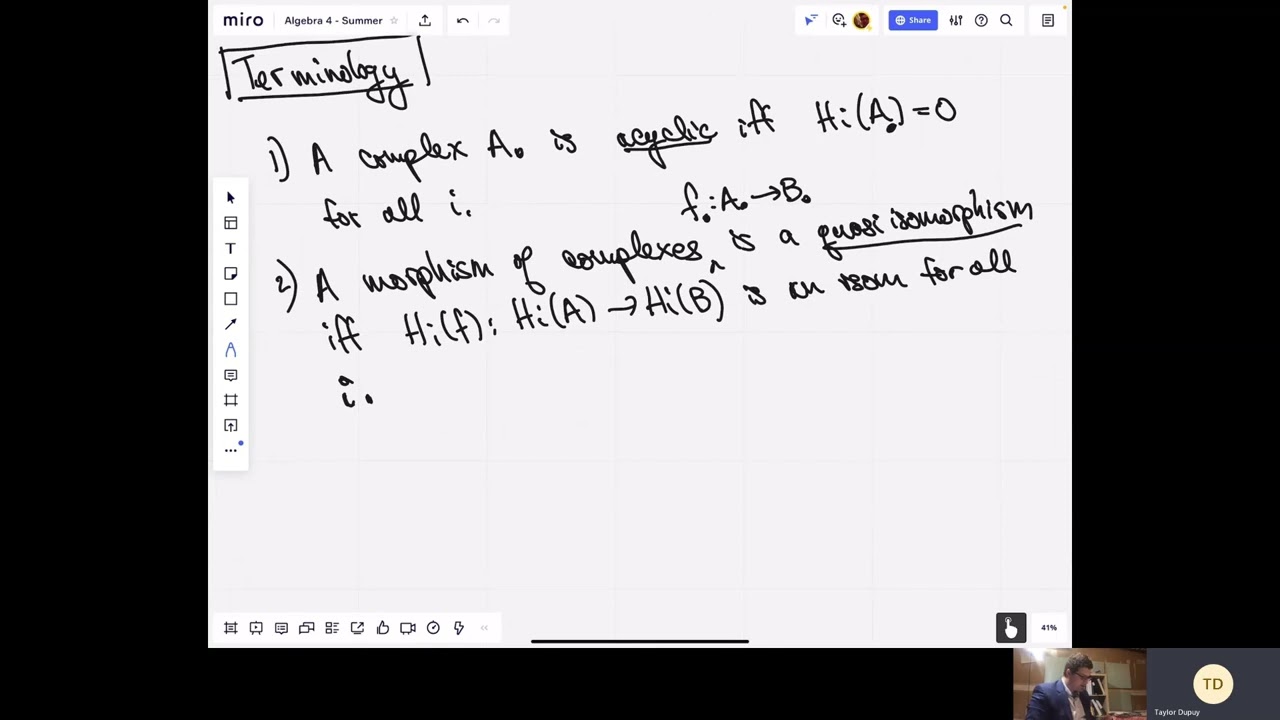 miro Algebra 4 - Summer Share
Terminology
1) A complex A. is acyclic iff Hi(A.)=0
for all i.
f.:A.→B.
2) A morphism of complexes ^ is a quasi isomorphism
iff Hi(f): Hi(A)→Hi(B) is an isom for all
i.
41%
TD
Taylor Dupuy